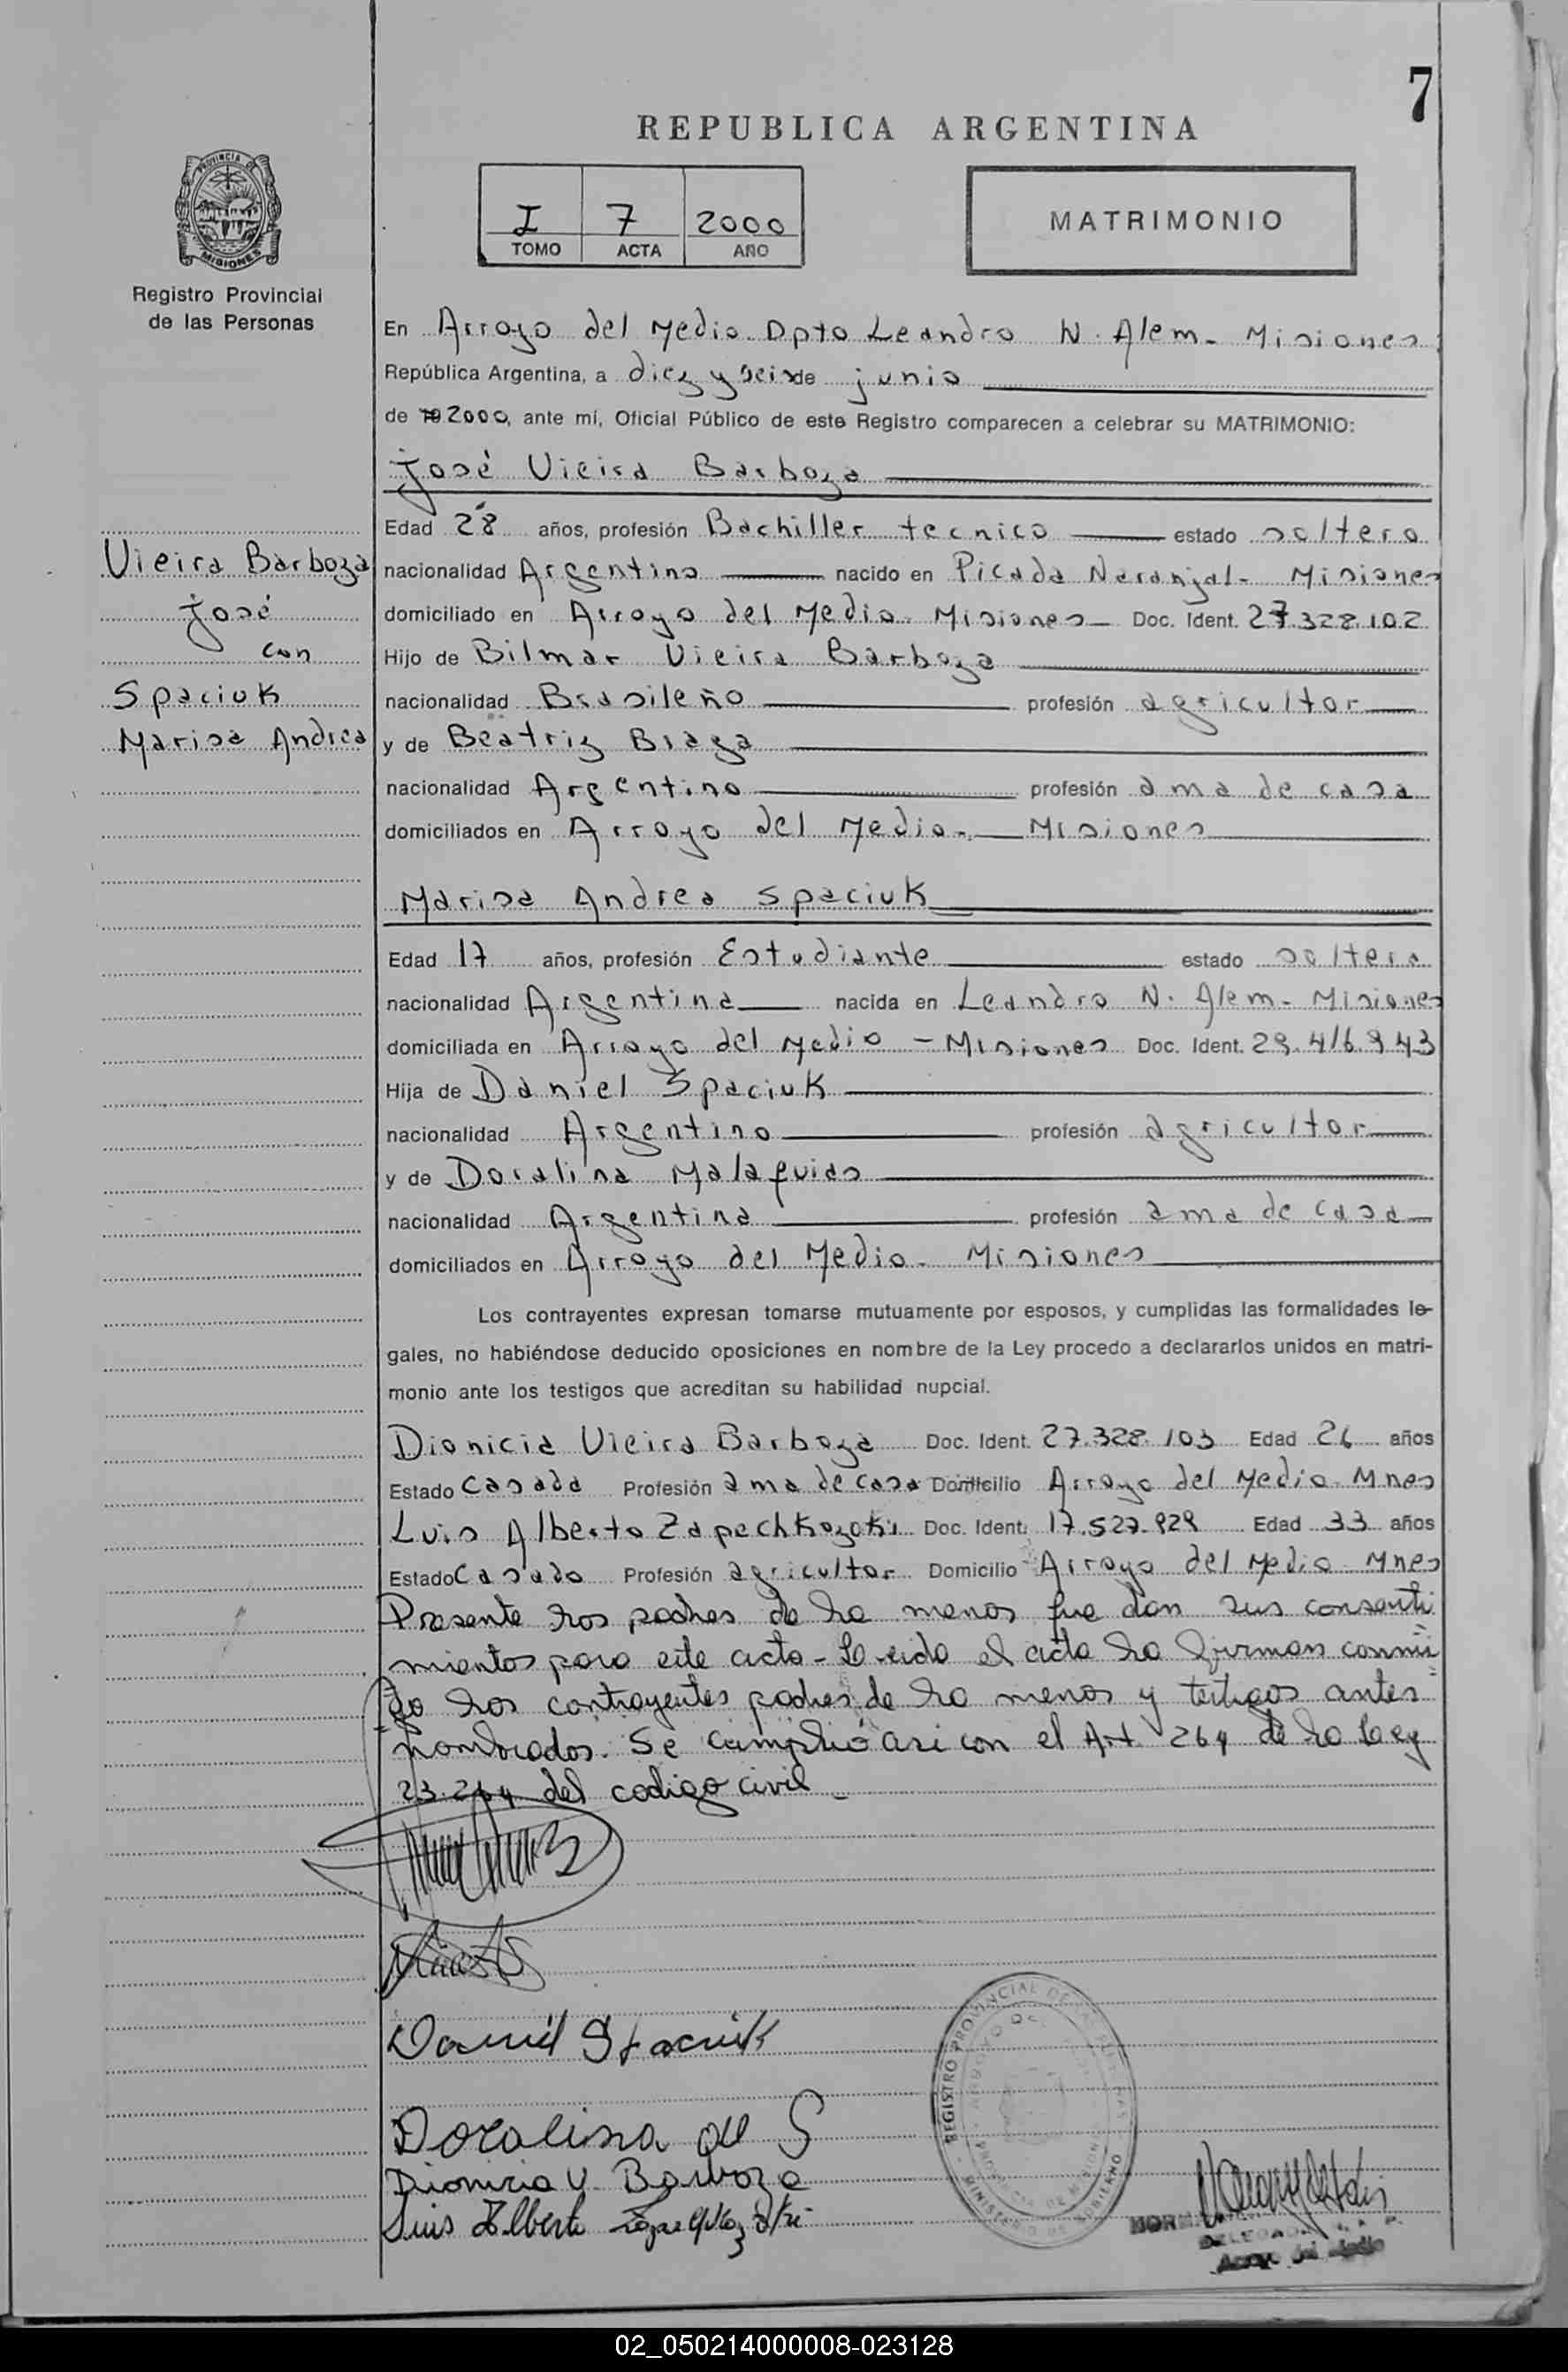 7
REPUBLICA ARGENTINA
I 7 2000
TOMO ACTA AÑO
MATRIMONIO
PROVINCIA DE
MISIONES
Registro Provincial
de las Personas
En Arroyo del Medio Dpto Leandro N. Alem - Misiones
República Argentina, a diez y seis de junio
de 2000, ante mí, Oficial Público de este Registro comparecen a celebrar su MATRIMONIO:
José Vieira Barboza
Edad 28 años, profesión Bachiller tecnico estado soltero
nacionalidad Argentino nacido en Picada Naranjal - Misiones
domiciliado en Arroyo del Medio. Misiones - Doc. Ident. 27.328.102
Hijo de Bilmar Vieira Barboza
nacionalidad Brasileño profesión agricultor
y de Beatriz Braga
nacionalidad Argentino profesión ama de casa
domiciliados en Arroyo del Medio - Misiones
Vieira Barboza
José
con
Spaciuk
Marisa Andrea
Marisa Andrea Spaciuk
Edad 17 años, profesión Estudiante estado soltera
nacionalidad Argentina nacida en Leandro N. Alem - Misiones
domiciliada en Arroyo del Medio - Misiones Doc. Ident. 29.416.943
Hija de Daniel Spaciuk
nacionalidad Argentino profesión agricultor
y de Doralina Malaquias
nacionalidad Argentina profesión ama de casa
domiciliados en Arroyo del Medio - Misiones
Los contrayentes expresan tomarse mutuamente por esposos, y cumplidas las formalidades le-
gales, no habiéndose deducido oposiciones en nombre de la Ley procedo a declararlos unidos en matri-
monio ante los testigos que acreditan su habilidad nupcial.
Dionicia Vieira Barboza Doc. Ident. 27.328.103 Edad 26 años
Estado Casada Profesión ama de casa Domicilio Arroyo del Medio - Mnes
Luis Alberto Zapechkozoki Doc. Ident. 17.527.929 Edad 33 años
Estado Casado Profesión agricultor Domicilio Arroyo del Medio - Mnes
Presente los padres de la menor que dan sus consenti
mientos para este acto - Leida el acta la firman conmi
go los contrayentes padres de la menor y testigos antes
nombrados. Se cumplió asi con el Art 264 de la Ley
23.264 del codigo civil -
Daniel Spaciuk
Doralina M S
Dionicia V. Barboza
Luis Alberto
REGISTRO PROVINCIAL DE LAS
MINISTERIO DE GOBIERNO
Arroyo del Medio
02_050214000008-023128